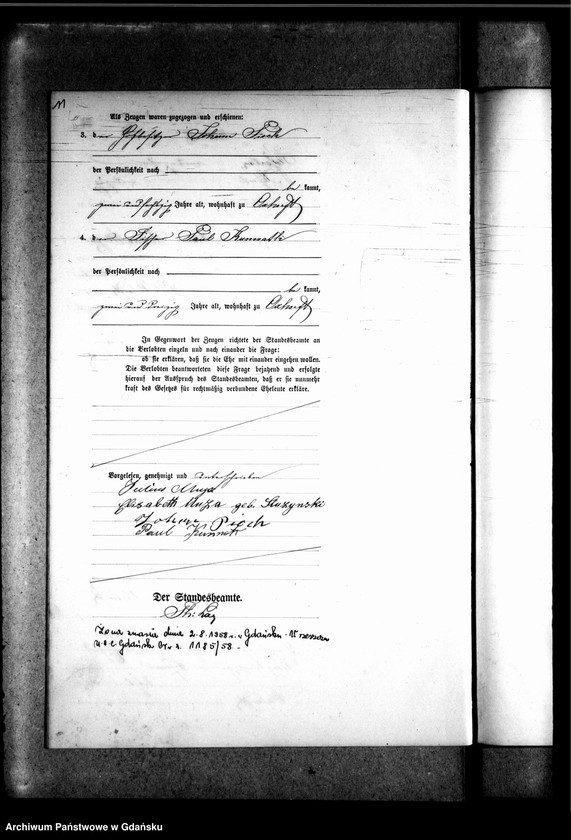 Als Zeugen waren zugezogen und erschienen:
3. der Johann Pioch
der Persönlichkeit nach
be kannt,
zwei und fechzig Jahre alt, wohnhaft zu Oxhöft
4. der Fischer Paul
der Persönlichkeit nach
be kannt,
zwei und Jahre alt, wohnhaft zu Oxhöft
In Gegenwart der Zeugen richtete der Standesbeamte an
die Verlobten einzeln und nach einander die Frage:
ob sie erklären, daß sie die Ehe mit einander eingehen wollen.
Die Verlobten beantworteten diese Frage bejahend und erfolgte
hierauf der Ausspruch des Standesbeamten, daß er sie nunmehr
kraft des Gesetzes für rechtmäßig verbundene Eheleute erkläre.
Vorgelesen, genehmigt und unterschrieben
Julius Muża
Elisabeth Muża geb. Skuzynski
Johann Pioch
Paul
Der Standesbeamte.
Żona zmarła dnia 2.8.1958 r. w Gdańsku-Wrzeszczu
u.s.c Gdańsk Wrz. 1185/58 -
Archiwum Państwowe w Gdańsku